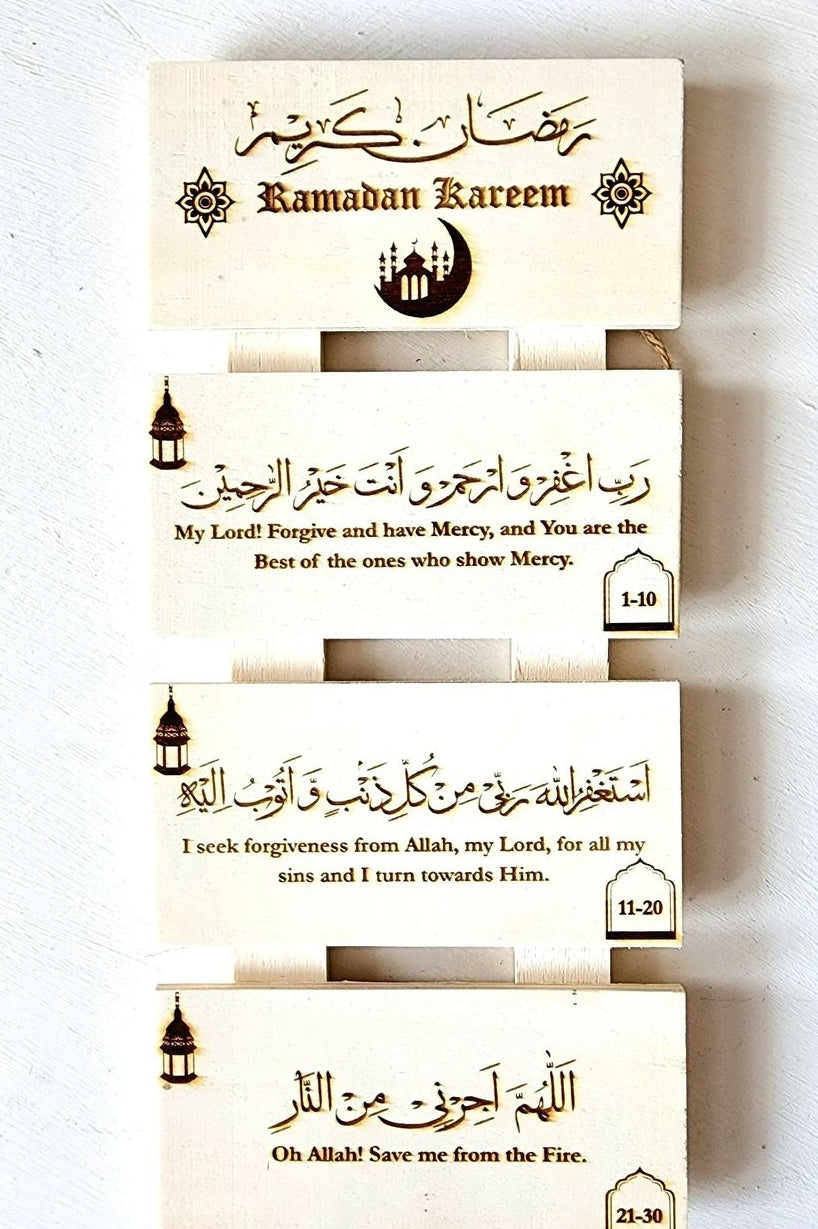 رمضان كريم
Ramadan Kareem
رَبِّ اغْفِرْ وَ ارْحَمْ وَ اَنْتَ خَيْرُ الرَّحِمِيْنَ
My Lord! Forgive and have Mercy, and You are the
Best of the ones who show Mercy.
1-10
اَسْتَغْفِرُ اللّٰهَ رَبِّىْ مِنْ كُلِّ ذَنْبٍ وَّ اَتُوْبُ اِلَيْهِ
I seek forgiveness from Allah, my Lord, for all my
sins and I turn towards Him.
11-20
اَللّٰهُمَّ اَجِرْنِىْ مِنَ النَّارِ
Oh Allah! Save me from the Fire.
21-30